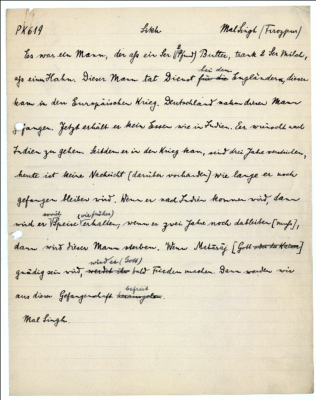 PK619 Sikh Mal Singh (Ferozpur)
Es war ein Mann, der ass ein Ser (Pfund) Butter, trank 2 Ser Milch,
ass einen Hahn. Dieser Mann tat Dienst für die bei den Engländern, dieser
kam in den Europäischen Krieg. Deutschland nahm diesen Mann
gefangen. Jetzt erhält er kein Essen wie in Indien. Er wünscht nach
Indien zu gehen. Seitdem er in den Krieg kam, sind drei Jahre
heute ist keine Nachricht [darüber vorhanden] wie lange er noch
gefangen bleiben wird. Wenn er nach Indien kommen wird, dann
wird er soviel Speise (wie früher) erhalten, wenn er zwei Jahre noch dableiben [muss],
dann wird dieser Mann sterben. Wenn [Gott
gnädig sein wird, wird er (Gott) bald Frieden machen. Dann werden wir
aus dieser Gefangenschaft befreit.
Mal Singh.